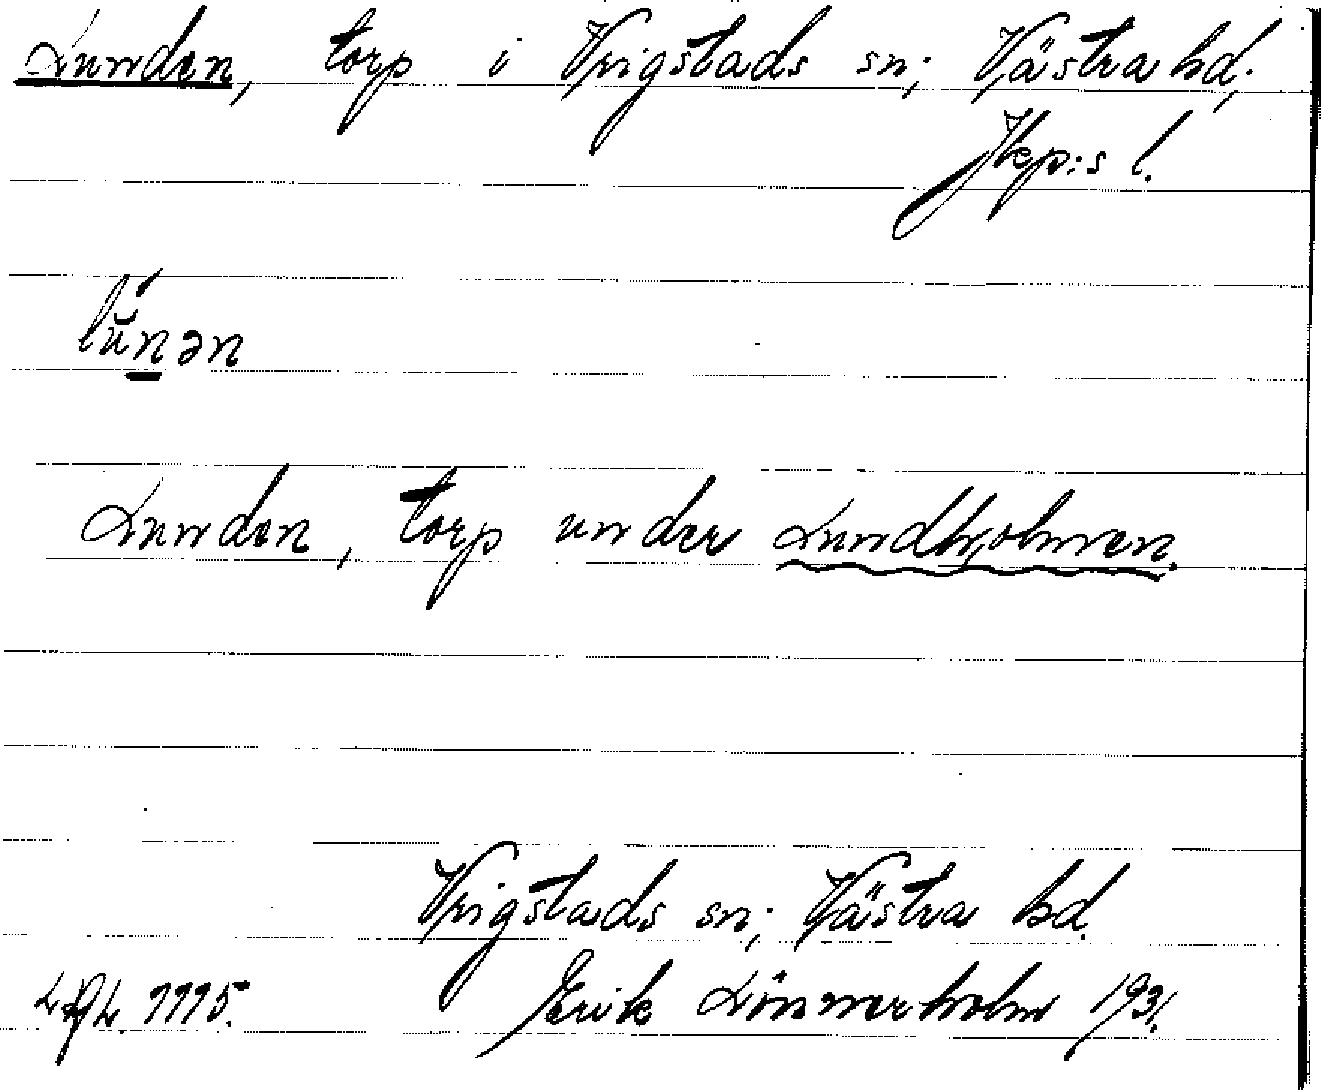 Lunden, torp i Vrigstads sn; Västra hd;
Jkp:s l.
lŭ́nən
Lunden, torp under Lundholmen.
Vrigstads sn; Västra hd.
Erik Linnerholm 1931.